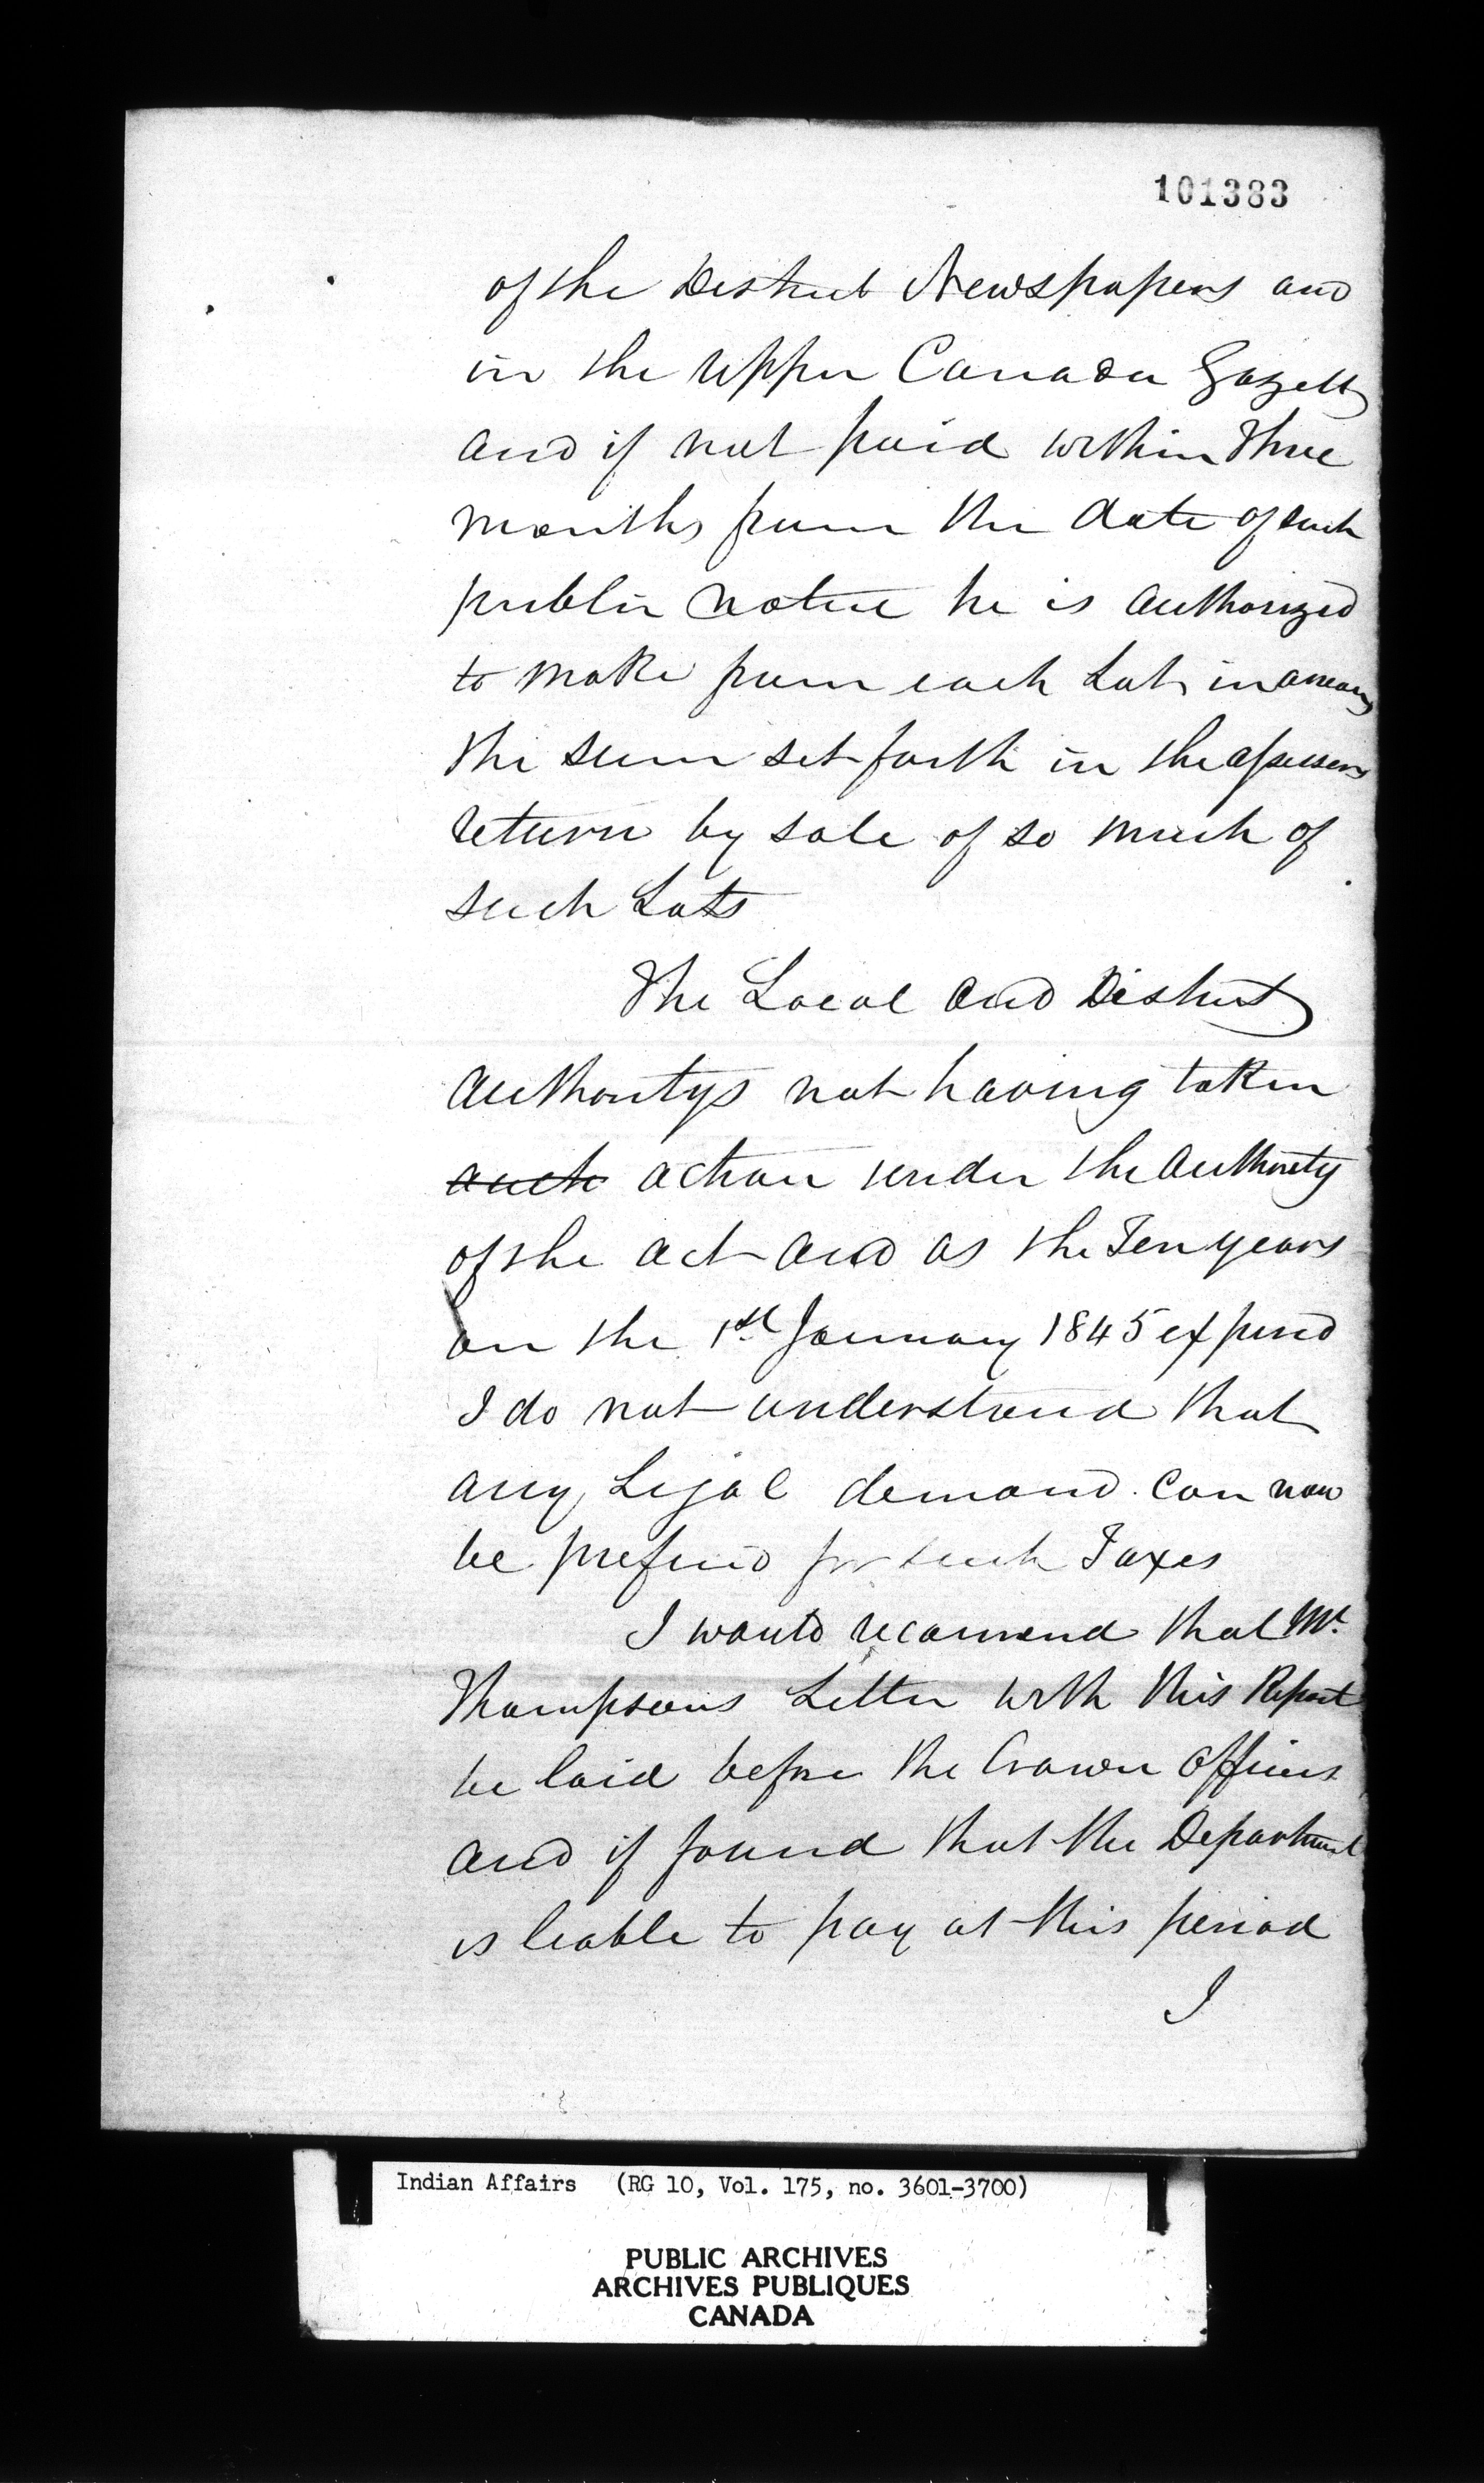 101383
of the District Newspapers and
in the Upper Canada Gazette
and if not paid within Three
months from the date of such
public notice he is authorized
to make from each Lot in arrears
the sum set forth in the assessors
return by sale of so much of
such Lots
The Local and District
authoritys not having taken
such action under the authority
of the act and as the Ten years
on the 1st January 1845 expired
I do not understand that
any Legal demand can now
be prefered for such Taxes
I would recommend that Mr.
Thompsons Letter with this Report
be laid before the Crown Officers
and if found that the Department
is liable to pay at this period
I
Indian Affairs (RG 10, Vol. 175, no. 3601-3700)
PUBLIC ARCHIVES
ARCHIVES PUBLIQUES
CANADA